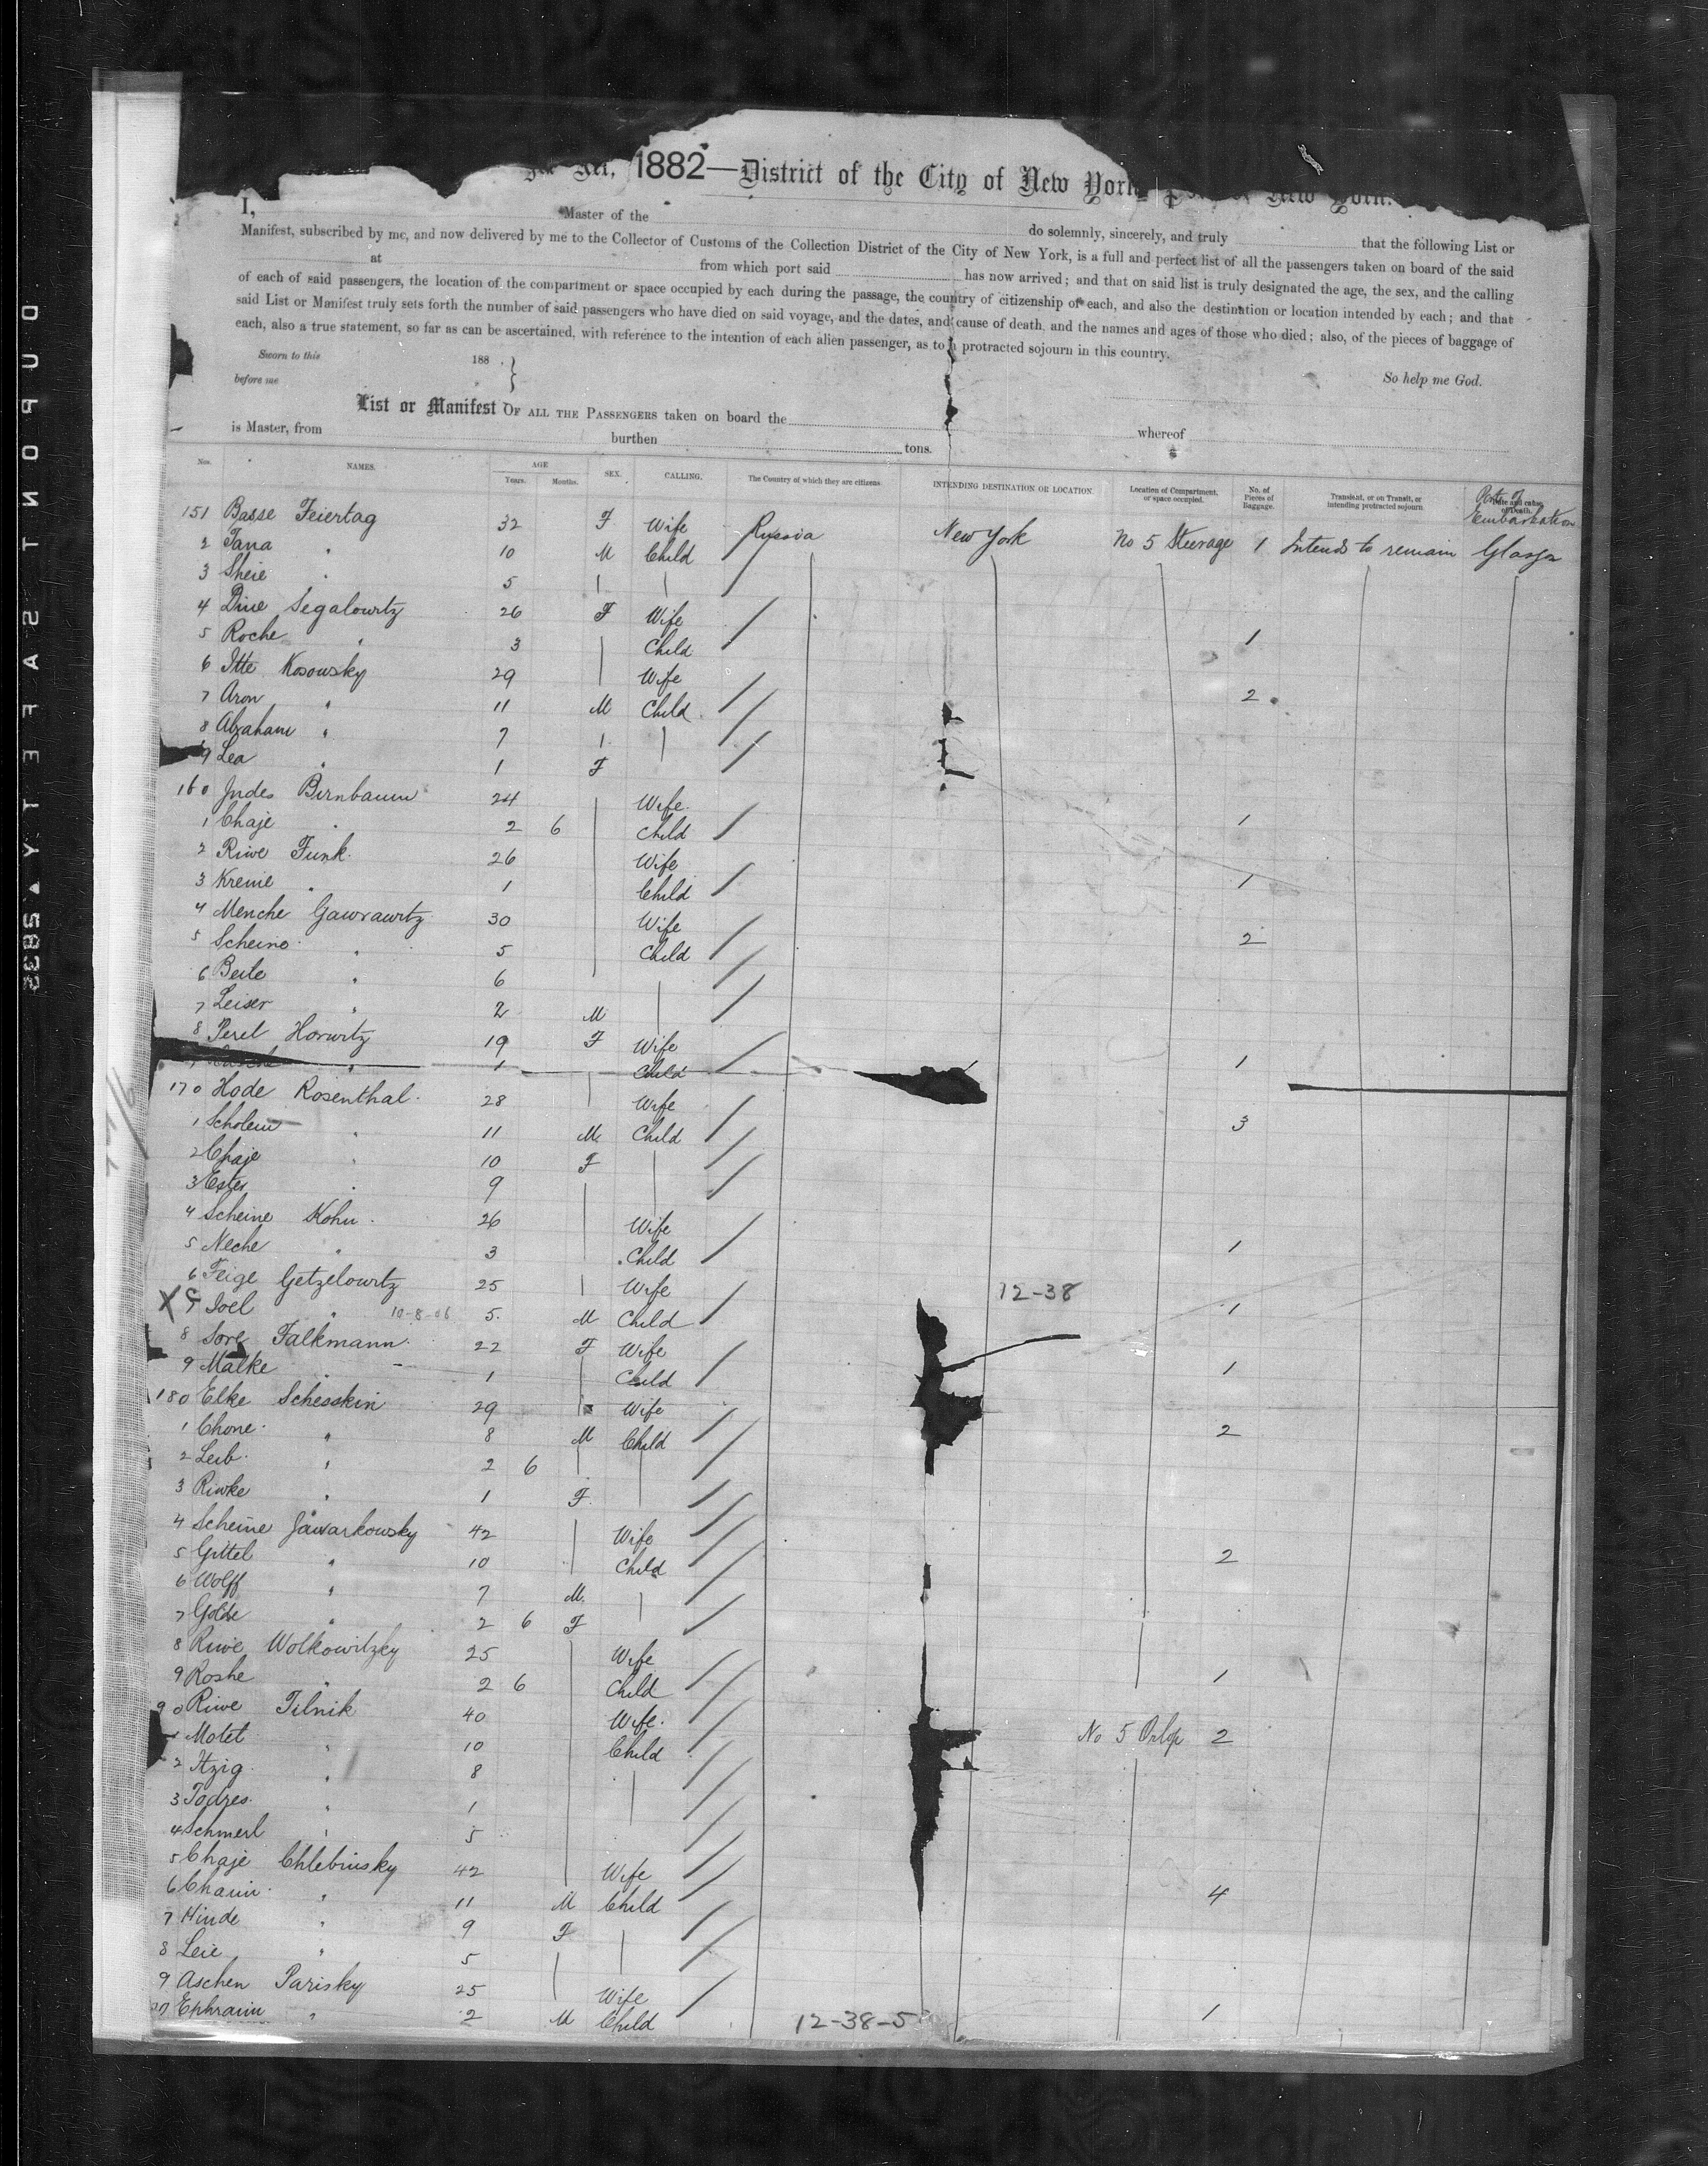 Act, 1882—District of the City of New York, Port of New York.
I, Master of the do solemnly, sincerely, and truly that the following List or
Manifest, subscribed by me, and now delivered by me to the Collector of Customs of the Collection District of the City of New York, is a full and perfect list of all the passengers taken on board of the said
at from which port said has now arrived; and that on said list is truly designated the age, the sex, and the calling
of each of said passengers, the location of the compartment or space occupied by each during the passage, the country of citizenship of each, and also the destination or location intended by each; and that
said List or Manifest truly sets forth the number of said passengers who have died on said voyage, and the dates, and cause of death, and the names and ages of those who died; also, of the pieces of baggage of
each, also a true statement, so far as can be ascertained, with reference to the intention of each alien passenger, as to a protracted sojourn in this country.
So help me God.
Sworn to this 188 .
before me
List or Manifest OF ALL THE PASSENGERS taken on board the whereof
is Master, from burthen tons.
Nos. NAMES. AGE Years. Months. SEX. CALLING. The Country of which they are citizens. INTENDING DESTINATION OR LOCATION. Location of Compartment, or space occupied. No. of Pieces of Baggage. Transient, or on Transit, or intending protracted sojourn. Date and cause of Death. Port of Embarkation
151 Basse Feiertag 32 F Wife Russia New York No 5 Steerage 1 Intends to remain Glasgow
2 Tana " 10 M Child
3 Sheie " 5
4 Dine Segalowitz 26 F Wife
5 Roche " 3 Child 1
6 Itte Kosowsky 29 Wife
7 Aron " 11 M Child 2
8 Abraham " 7
9 Lea " 1 F
160 Judes Birnbaum 24 Wife
1 Chaje " 2 6 Child 1
2 Riwe Funk 26 Wife
3 Kreine " 1 Child 1
4 Menche Gawrawitz 30 Wife
5 Scheine " 5 Child 2
6 Beile " 6
7 Leiser " 2 M
8 Perel Horwitz 19 F Wife
" 1 Child 1
170 Hode Rosenthal 28 Wife
1 Scholem " 11 M Child 3
2 Chaje " 10 F
3 Ester " 9
4 Scheine Kohn 26 Wife
5 Neche " 3 Child 1
6 Feige Getzelowitz 25 Wife 12-38
X C 7 Joel " 10-8-06 5 M Child 1
8 Sore Falkmann 22 F Wife
9 Malke " 1 Child 1
180 Elke Schesskin 29 Wife
1 Chone " 8 M Child 2
2 Leib " 2 6
3 Riwke " 1 F
4 Scheine Jawarkowsky 42 Wife
5 Gittel " 10 Child 2
6 Wolff " 7 M
7 Golde " 2 6 F
8 Riwe Wolkowitzky 25 Wife
9 Roshe " 2 6 Child 1
90 Riwe Tilnik 40 Wife
1 Motel " 10 Child No 5 Orlop 2
2 Itzig " 8
3 Todres " 1
4 Schmerl " 5
5 Chaje Chlebinsky 42 Wife
6 Chaim " 11 M Child 4
7 Hinde " 9 F
8 Leie " 5
9 Aschen Parisky 25 Wife
Ephraim " 2 M Child 1
12-38-5
DUPONT SAFETY ▲ 5832